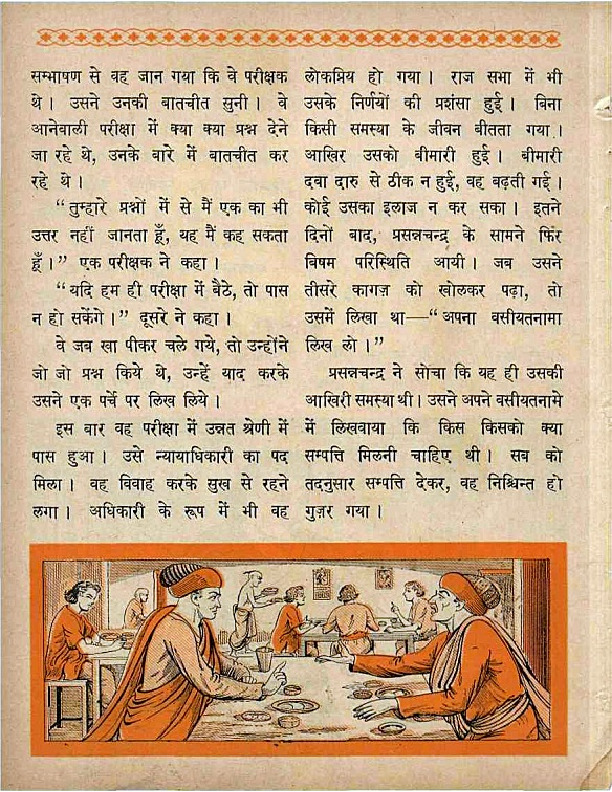 सम्भाषण से वह जान गया कि वे परीक्षक
थे। उसने उनकी बातचीत सुनी। वे
आनेवाली परीक्षा में क्या क्या प्रश्न देने
जा रहे थे, उनके बारे में बातचीत कर
रहे थे।
“तुम्हारे प्रश्नों में से मैं एक का भी
उत्तर नहीं जानता हूँ, यह मैं कह सकता
हूँ।” एक परीक्षक ने कहा।
“यदि हम ही परीक्षा में बैठे, तो पास
न हो सकेंगे।” दूसरे ने कहा।
वे जब खा पीकर चले गये, तो उन्होंने
जो जो प्रश्न किये थे, उन्हें याद करके
उसने एक पर्चे पर लिख लिये।
इस बार वह परीक्षा में उन्नत श्रेणी में
पास हुआ। उसे न्यायाधिकारी का पद
मिला। वह विवाह करके सुख से रहने
लगा। अधिकारी के रूप में भी वह
लोकप्रिय हो गया। राज सभा में भी
उसके निर्णयों की प्रशंसा हुई। बिना
किसी समस्या के जीवन बीतता गया।
आखिर उसको बीमारी हुई। बीमारी
दवा दारु से ठीक न हुई, वह बढ़ती गई।
कोई उसका इलाज न कर सका। इतने
दिनों बाद, प्रसन्नचन्द्र के सामने फिर
विषम परिस्थिति आयी। जब उसने
तीसरे कागज़ को खोलकर पढ़ा, तो
उसमें लिखा था—“अपना वसीयतनामा
लिख लो।”
प्रसन्नचन्द्र ने सोचा कि यह ही उसकी
आखिरी समस्या थी। उसने अपने वसीयतनामे
में लिखवाया कि किस किसको क्या
सम्पत्ति मिलनी चाहिए थी। सब को
तदनुसार सम्पत्ति देकर, वह निश्चिन्त हो
गुज़र गया।